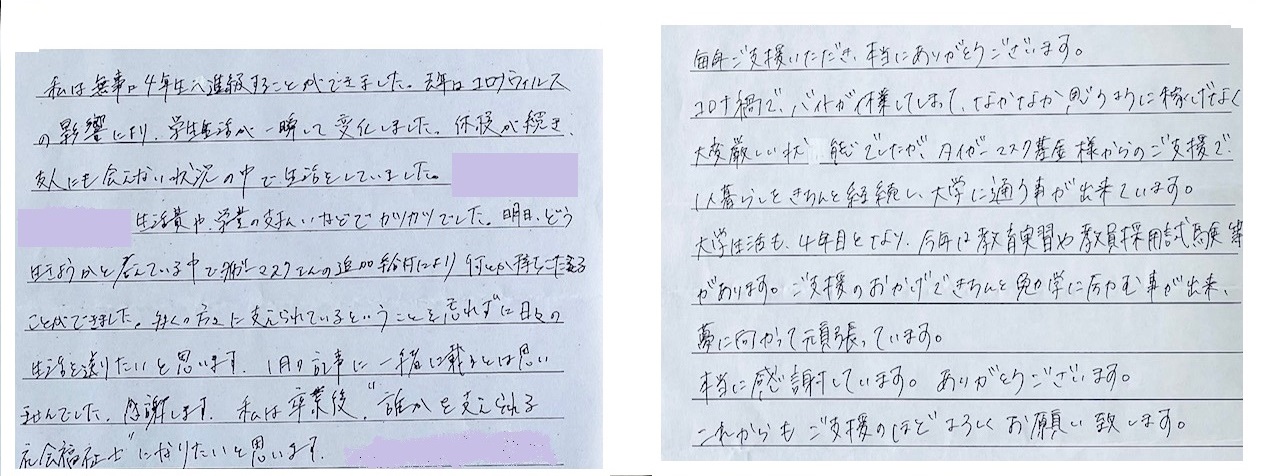 私は無事に4年生へ進級することができました。去年はコロナウィルス
の影響により、学生生活が一瞬して変化しました。休校が続き、
友人にも会えない状況の中で生活をしていました。
生活費や、学業の支払いなどでカツカツでした。明日、どう
生きようかと考えている中でタイガーマスクさんの追加給付により何とか持ちこたえる
ことができました。多くの方々に支えられているということを忘れずに日々の
生活を送りたいと思います。1月の記事に一緒に載るとは思い
ませんでした。感謝します。私は卒業後、"誰かを支えられる
社会福祉士"になりたいと思います。
毎年ご支援いただき、本当にありがとうございます。
コロナ禍で、バイトが休業してしまって、なかなか思うように稼げなく
大変厳しい状態でしたが、タイガーマスク基金様からのご支援で、
1人暮らしをきちんと継続し、大学に通う事が出来ています。
大学生活も、4年目となり、今年は教育実習や教員採用試験等
があります。ご支援のおかげできちんと勉学に励む事が出来、
夢に向かって頑張っています。
本当に感謝しています。ありがとうございます。
これからもご支援のほどよろしくお願い致します。